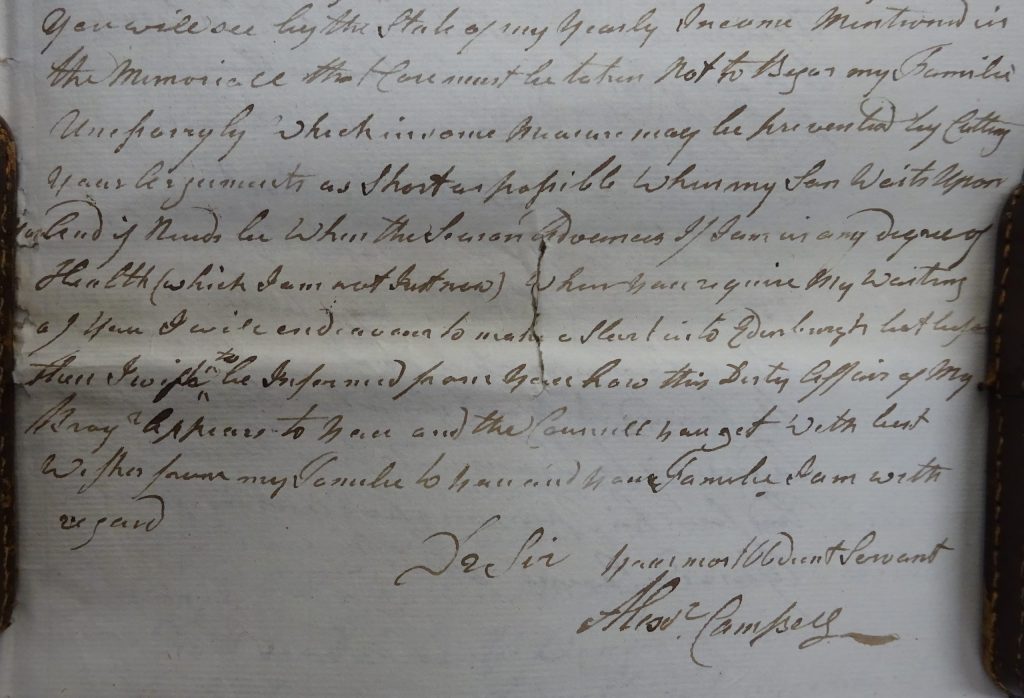 You will see by the State of my Yearly Income Mentioned in
the Memoriall that Care must be taken Not to Begar my Familie
Unesparryly Which in some Measure may be prevented by Cutting
Your Arguments as Short as possible When my Son Waits Upon
You And if Needs be When the Season Advances If I am in any degree of
Health (which I am not Just now) When you require My Waiting
of You I will endeavour to make a Start into Edinburgh but before
then I wish to be Informed from You how this Dirty Affair of My
appears to You and the Councill you get With best
Wishes from my Familie to you and your Familie I am with
regard
Dr Sir your most Obdient Servant
Alexr. Campbell